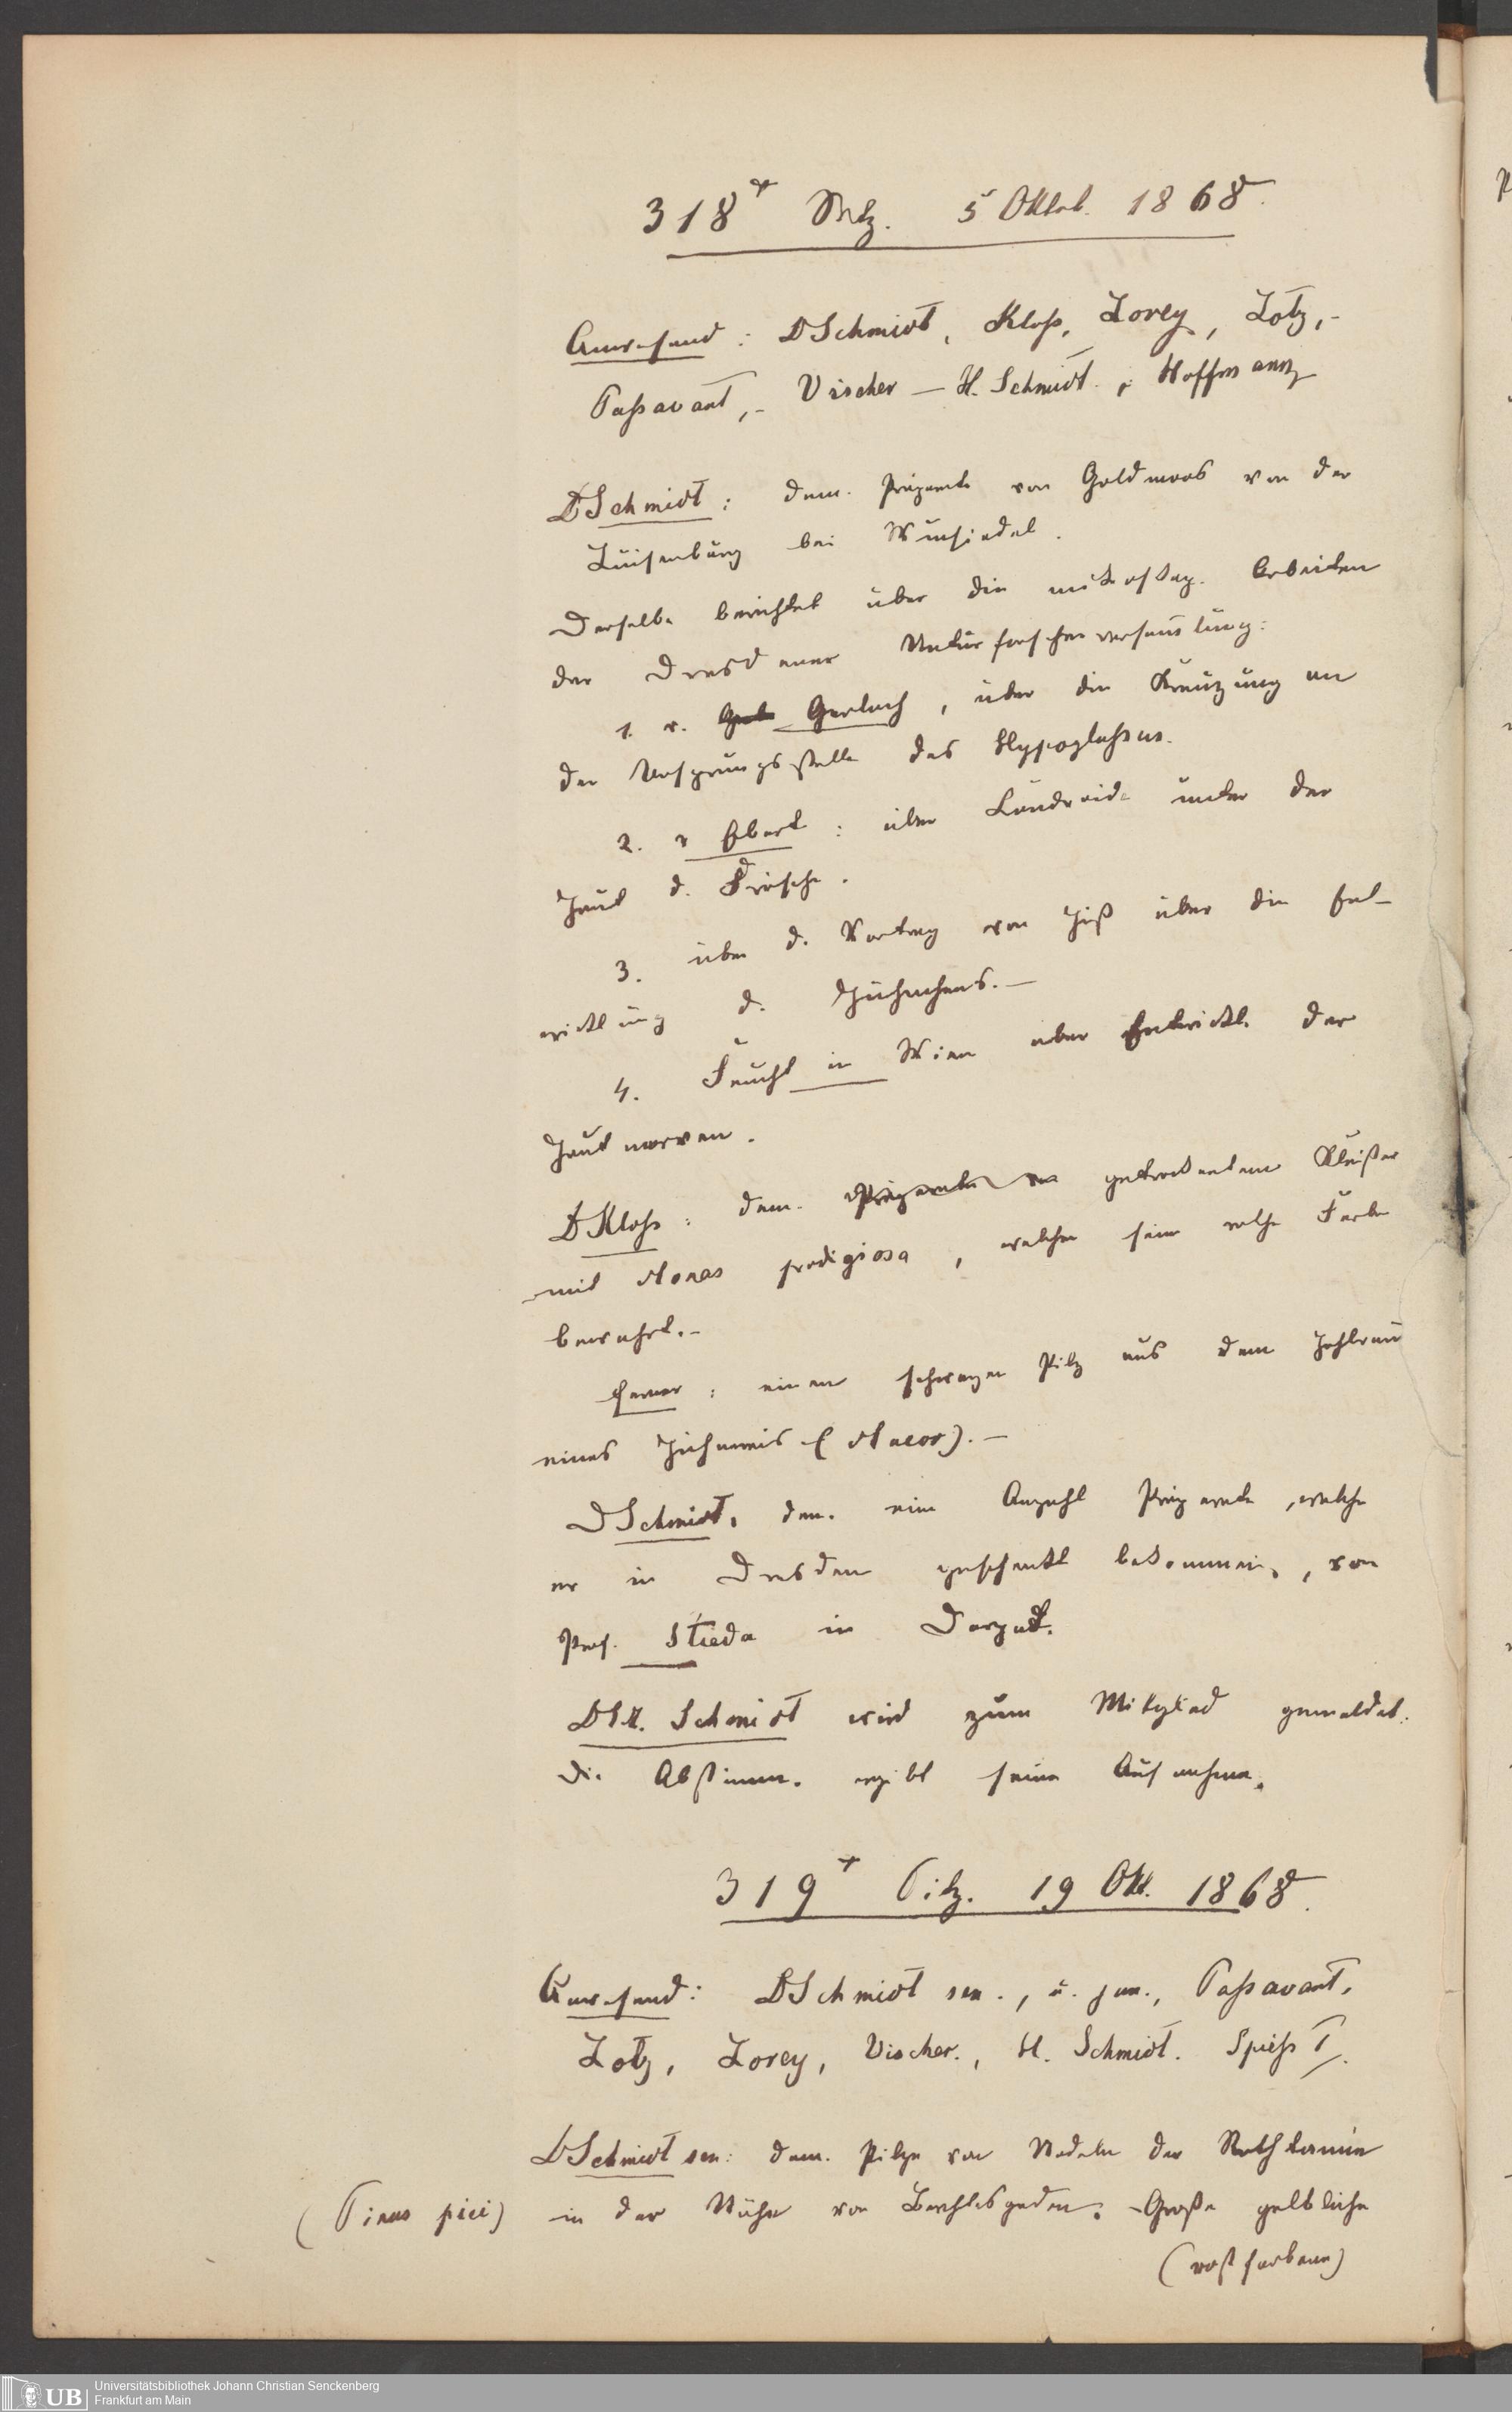 318te Sitz. 5 Oktob. 1868.
Anwesend: DSchmidt, Kloß, Lorey, Lotz,-
Paßavant,- Vischer — H. Schmidt, Hoffmann
DSchmidt: dem. Präparate von Goldmoos von der
Luisenburg bei Wunsiedel.
Derselbe berichtet über die mikroskop. Arbeiten
der Dresdener Naturforscherversamlung:
1. v. Gerlach, über die Kreuzung an
der Ursprungsstelle des Hypoglaßus.
2. v Ebert: über unter der
Haut d. Frösche.
3. über d. Vortrag von Hiß über die Ent-
wicklung d. Hühnchens.—
4. in Wien über Entwickl. der
Hautnerven.
DKloß: dem. Präparate von getrocknetem Kleister
mit Monas prodigiosa, welcher seine rothe Farbe
bewahrt.-
ferner: einen schwarzen Pilz aus dem
eines Hühnereis (Mucor).—
DSchmidt, dem. eine Anzahl Präparate, welche
er in Dresden geschenkt bekommen, von
Prof. Stieda in Dorpat.
DH. Schmidt wird zum Mitglied gemeldet.
Die Abstimm. ergibt seine Aufnahme.
319te Sitz. 19 Okt. 1868.
Anwesend: DSchmidt sen., u. jun., Paßavant,
Lotz, Lorey, Vischer., H. Schmidt. Spieß T.
DSchmidt sen: dem. Pilze von Nadeln der Rothtanne
(Pinus pici) in der Nähe von Berchtesgaden. Große gelbliche
(rostfarbene)
Universitätsbibliothek Johann Christian Senckenberg
Frankfurt am Main
UB